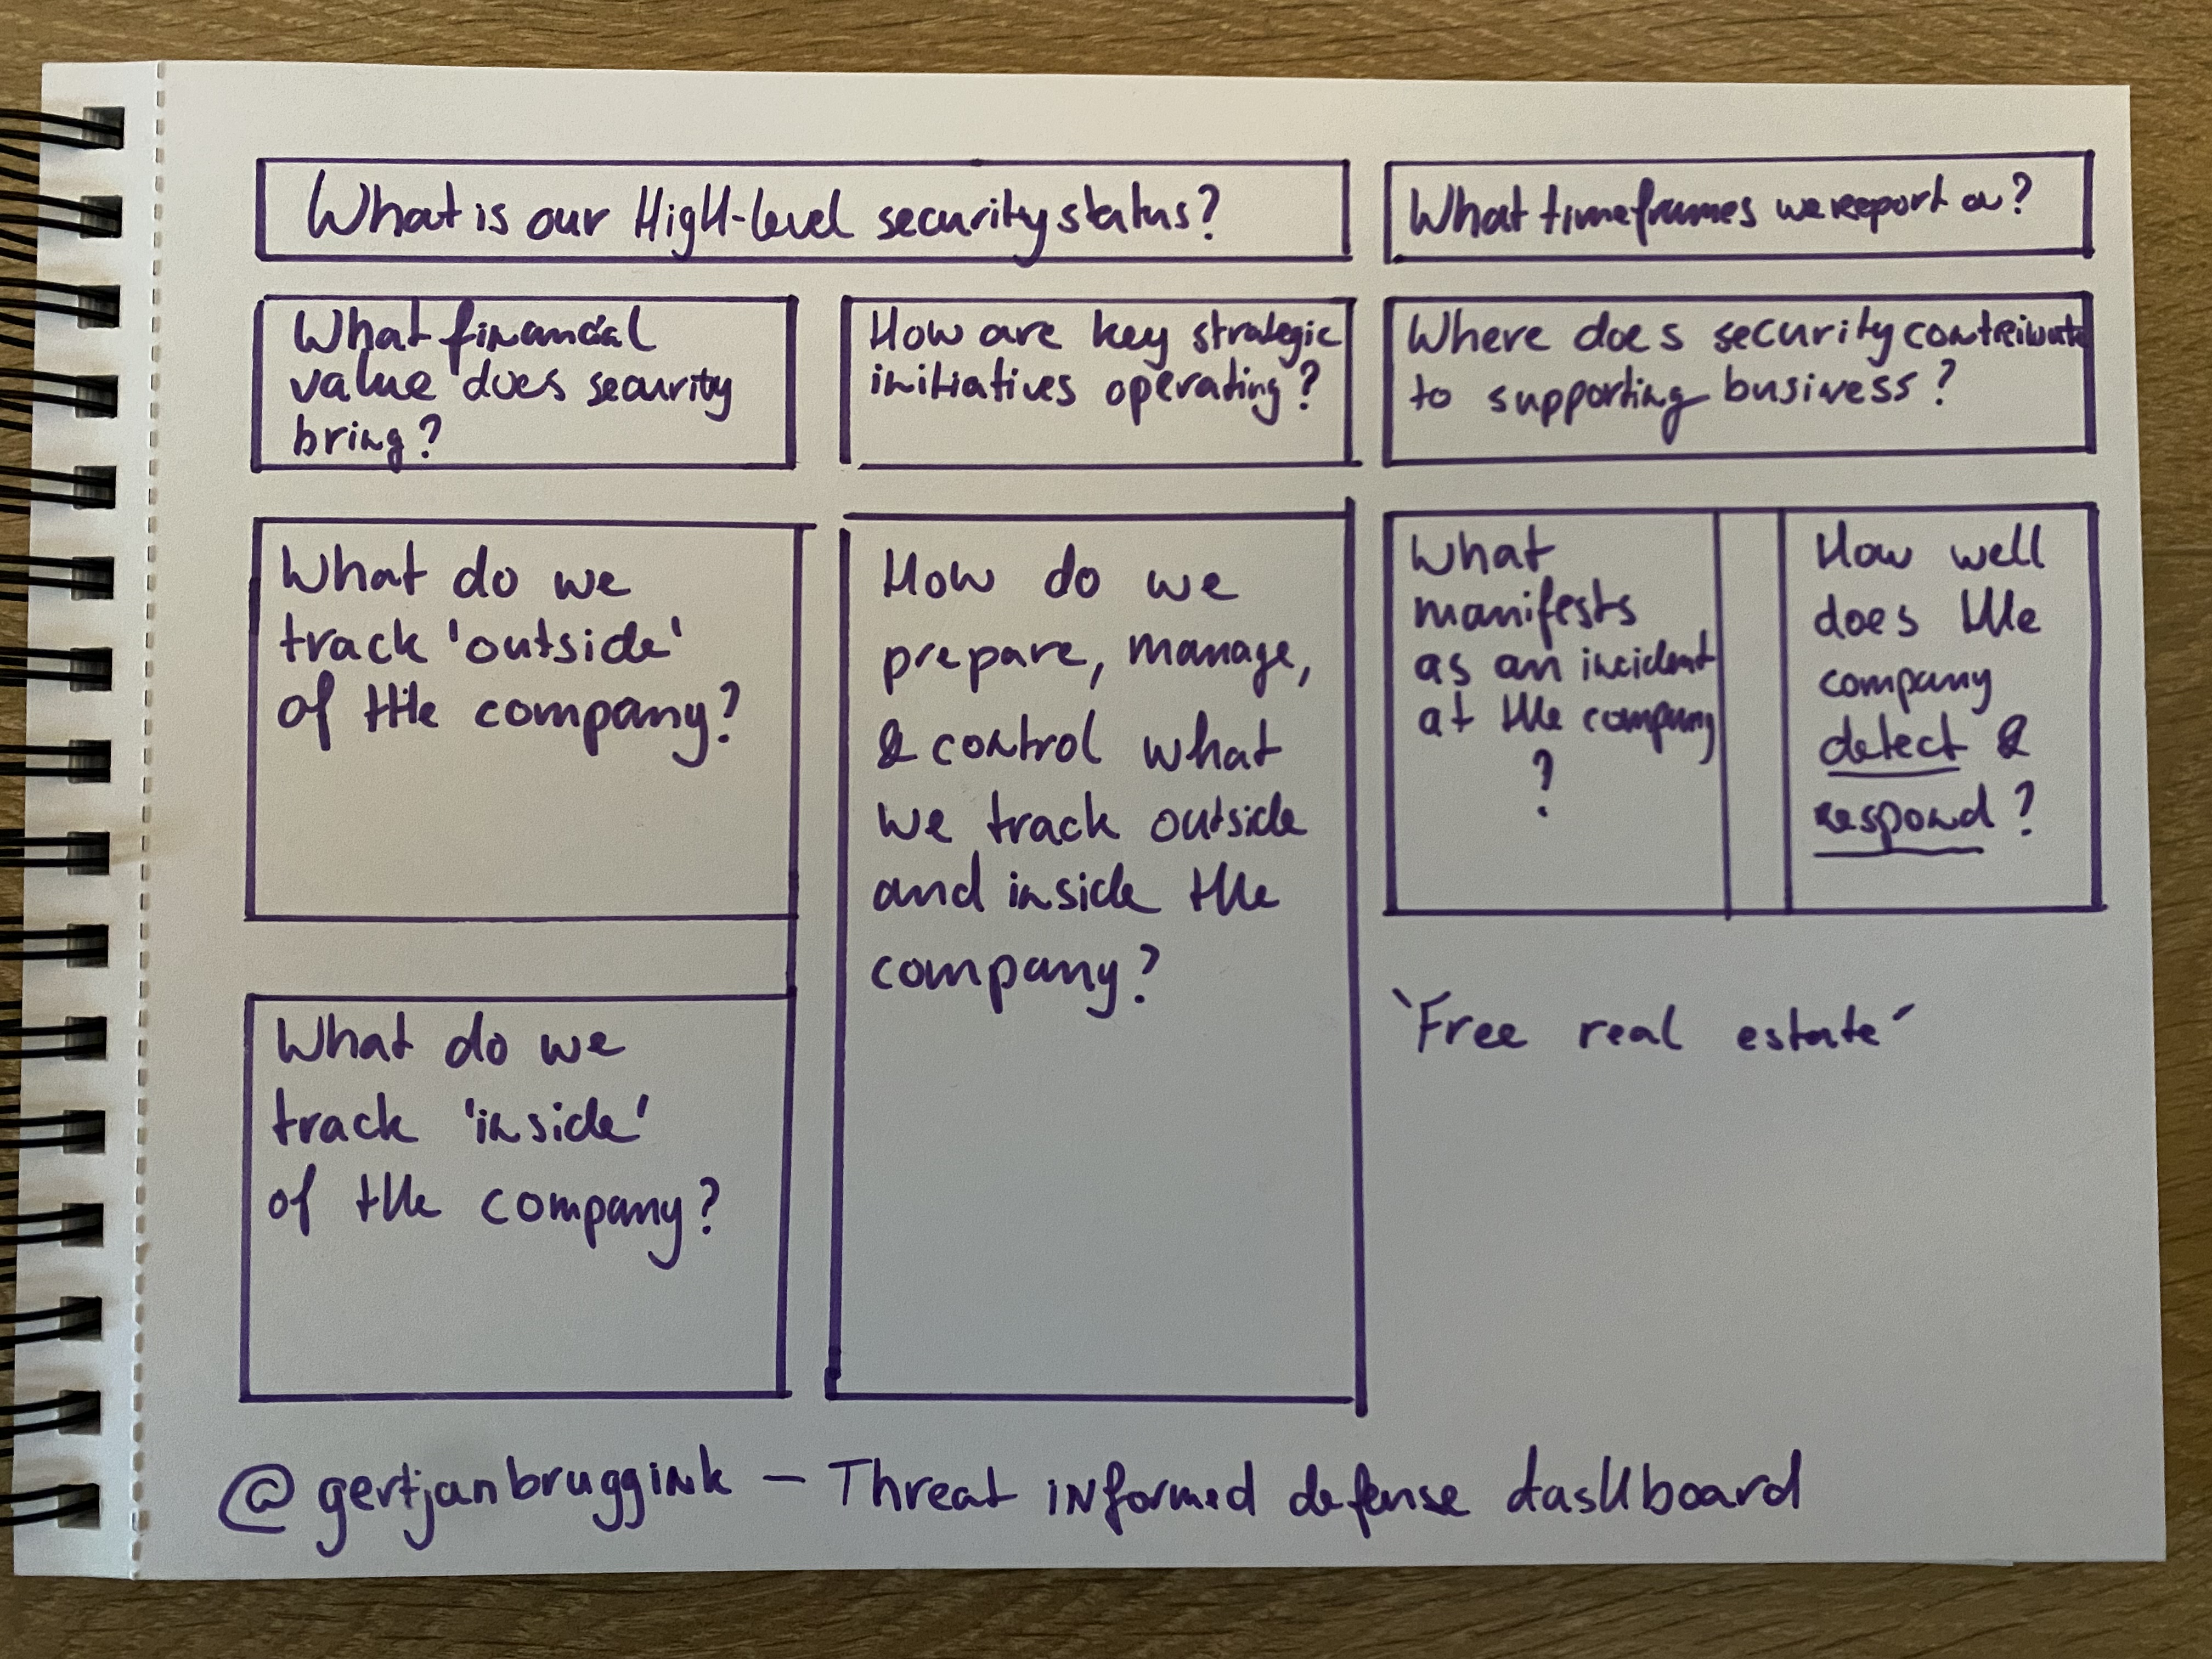 What is our High-level security status?
What timeframes we report on?
What financial
value does security
bring?
How are key strategic
initiatives operating?
Where does security contribute
to supporting business?
What do we
track 'outside'
of the company?
How do we
prepare, manage,
& control what
we track outside
and inside the
company?
What
manifests
as an incident
at the company
?
How well
does the
company
detect &
respond?
What do we
track 'inside'
of the company?
`Free real estate´
@gertjanbruggink — Threat informed defense dashboard